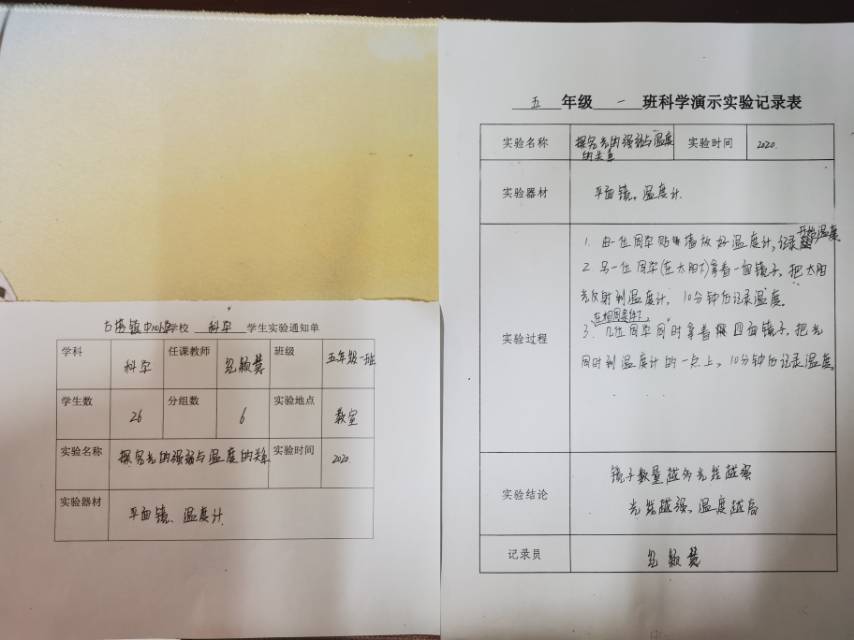 中心小学校 科学 学生实验通知单
学科 科学 任课教师 班级 五年级一班
学生数 26 分组数 6 实验地点 教室
实验名称 探究光的强弱与温度的关系 实验时间 2020.
实验器材 平面镜、温度计
五 年级 一 班科学演示实验记录表
实验名称 探究光的强弱与温度的关系 实验时间 2020.
实验器材 平面镜。温度计.
实验过程
1. 由一位同学贴墙放好温度计,记录开始温度.
2. 另一位同学(在太阳下)拿着一面镜子,把太阳
光反射到温度计,10分钟后记录温度.
在相同条件下,
3. 几位同学同时拿着四面镜子,把光
同时到温度计的一点上,10分钟后记录温度.
实验结论
镜子数量越多光线越强
光线越强,温度越高
记录员